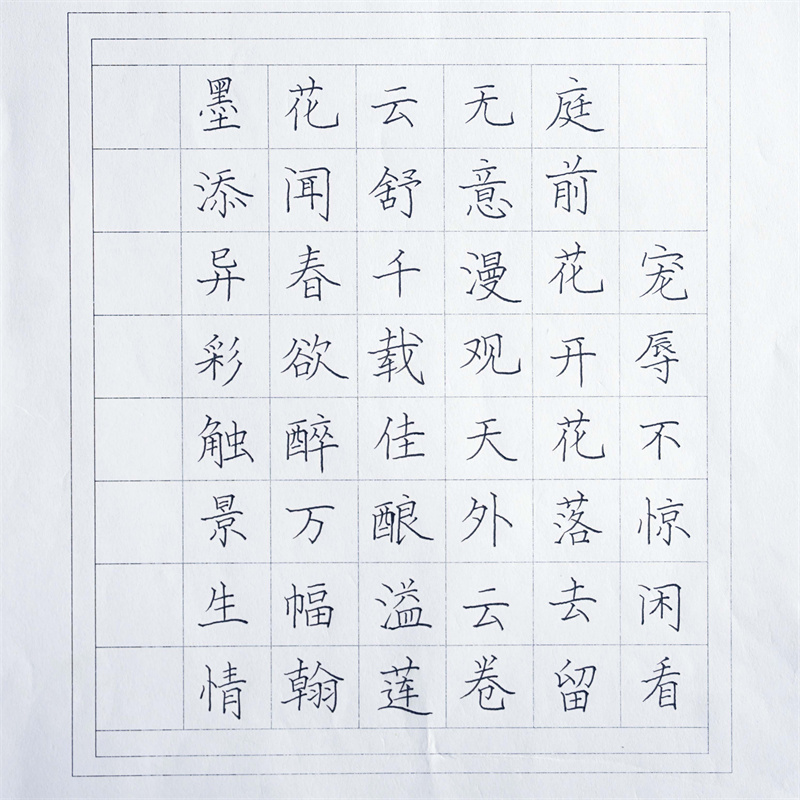 宠辱不惊闲看
庭前花开花落去留
无意漫观天外云卷
云舒千载佳酿溢莲
花闻春欲醉万幅翰
墨添异彩触景生情